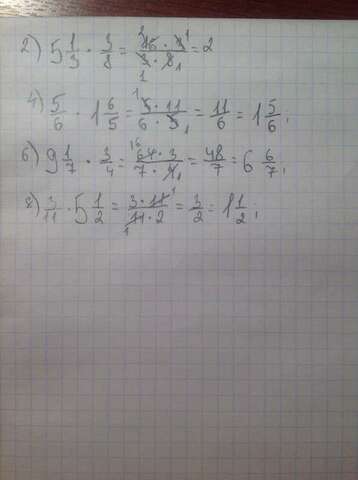 2) 5 1/3 · 3/8 = 16 · 3 / 3 · 8 = 2
4) 5/6 · 1 6/5 = 5 · 11 / 6 · 5 = 11/6 = 1 5/6;
6) 9 1/7 · 3/4 = 64 · 3 / 7 · 4 = 48/7 = 6 6/7;
8) 3/11 · 5 1/2 = 3 · 11 / 11 · 2 = 3/2 = 1 1/2;